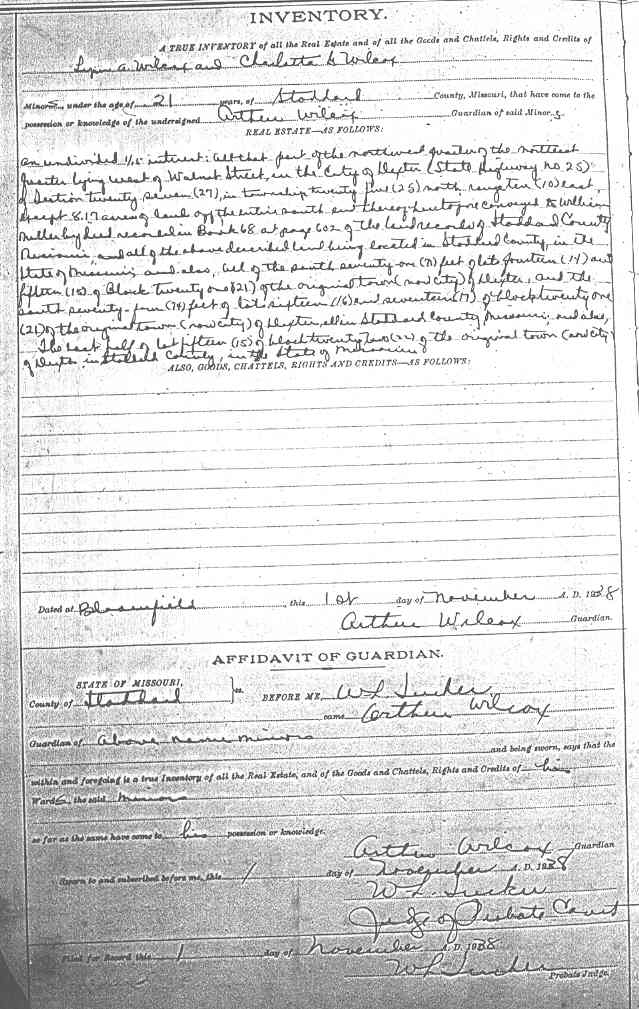 INVENTORY.
A TRUE INVENTORY of all the Real Estate and of all the Goods and Chattels, Rights and Credits of
A. Wilcox and Charlotta Wilcox
Minors, under the age of 21 years, of Stoddard County, Missouri, that have come to the
possession or knowledge of the undersigned Arthur Wilcox Guardian of said Minors
REAL ESTATE—AS FOLLOWS:
an undivided 1/5 interest: All that part of the northwest quarter of the northeast
quarter lying west of Walnut Street, in the City of Dexter (State Highway no. 25)
of Section twenty seven (27), in township twenty five (25) north, range ten (10) east,
except 8.17 acres of land off the entire south end thereof heretofore conveyed to William
Miller by deed recorded in Book 68 at page 602 of the land records of Stoddard County
Missouri, and all of the above described land being located in Stoddard County, in the
State of Missouri, and also, all of the south seventy-one (71) feet of lots fourteen (14) and
fifteen (15) of Block twenty one (21) of the original town (now city) of Dexter, and the
south seventy-four (74) feet of lots sixteen (16) and seventeen (17) of block twenty one
(21) of the original town (now city) of Dexter, all in Stoddard County Missouri, and also,
The East half of lot fifteen (15) of block twenty two (22) of the original town (now City
of Dexter in Stoddard County, in the State of Missouri
ALSO, GOODS, CHATTELS, RIGHTS AND CREDITS—AS FOLLOWS:
Dated at Bloomfield, this 1st day of November A. D. 1928
Arthur Wilcox Guardian.
AFFIDAVIT OF GUARDIAN.
STATE OF MISSOURI,
County of Stoddard } ss. BEFORE ME, W L Tucker
came Arthur Wilcox
Guardian of above name minors
and being sworn, says that the
within and foregoing is a true Inventory of all the Real Estate, and of the Goods and Chattels, Rights and Credits of his
Wards, the said minors
so far as the same have come to his possession or knowledge.
Arthur Wilcox Guardian
Sworn to and subscribed before me, this 1 day of November A. D. 1928
W. L. Tucker
Judge of Probate Court
Filed for Record this 1 day of November A. D. 1928
W L Tucker Probate Judge.